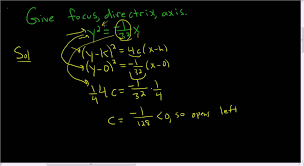 Give focus, directrix, axis.
y² = -1/32 x
Sol
(y-k)² = 4c(x-h)
(y-0)² = -1/32 (x-0)
1/4 · 4c = -1/32 · 1/4
c = -1/128 < 0, so opens left